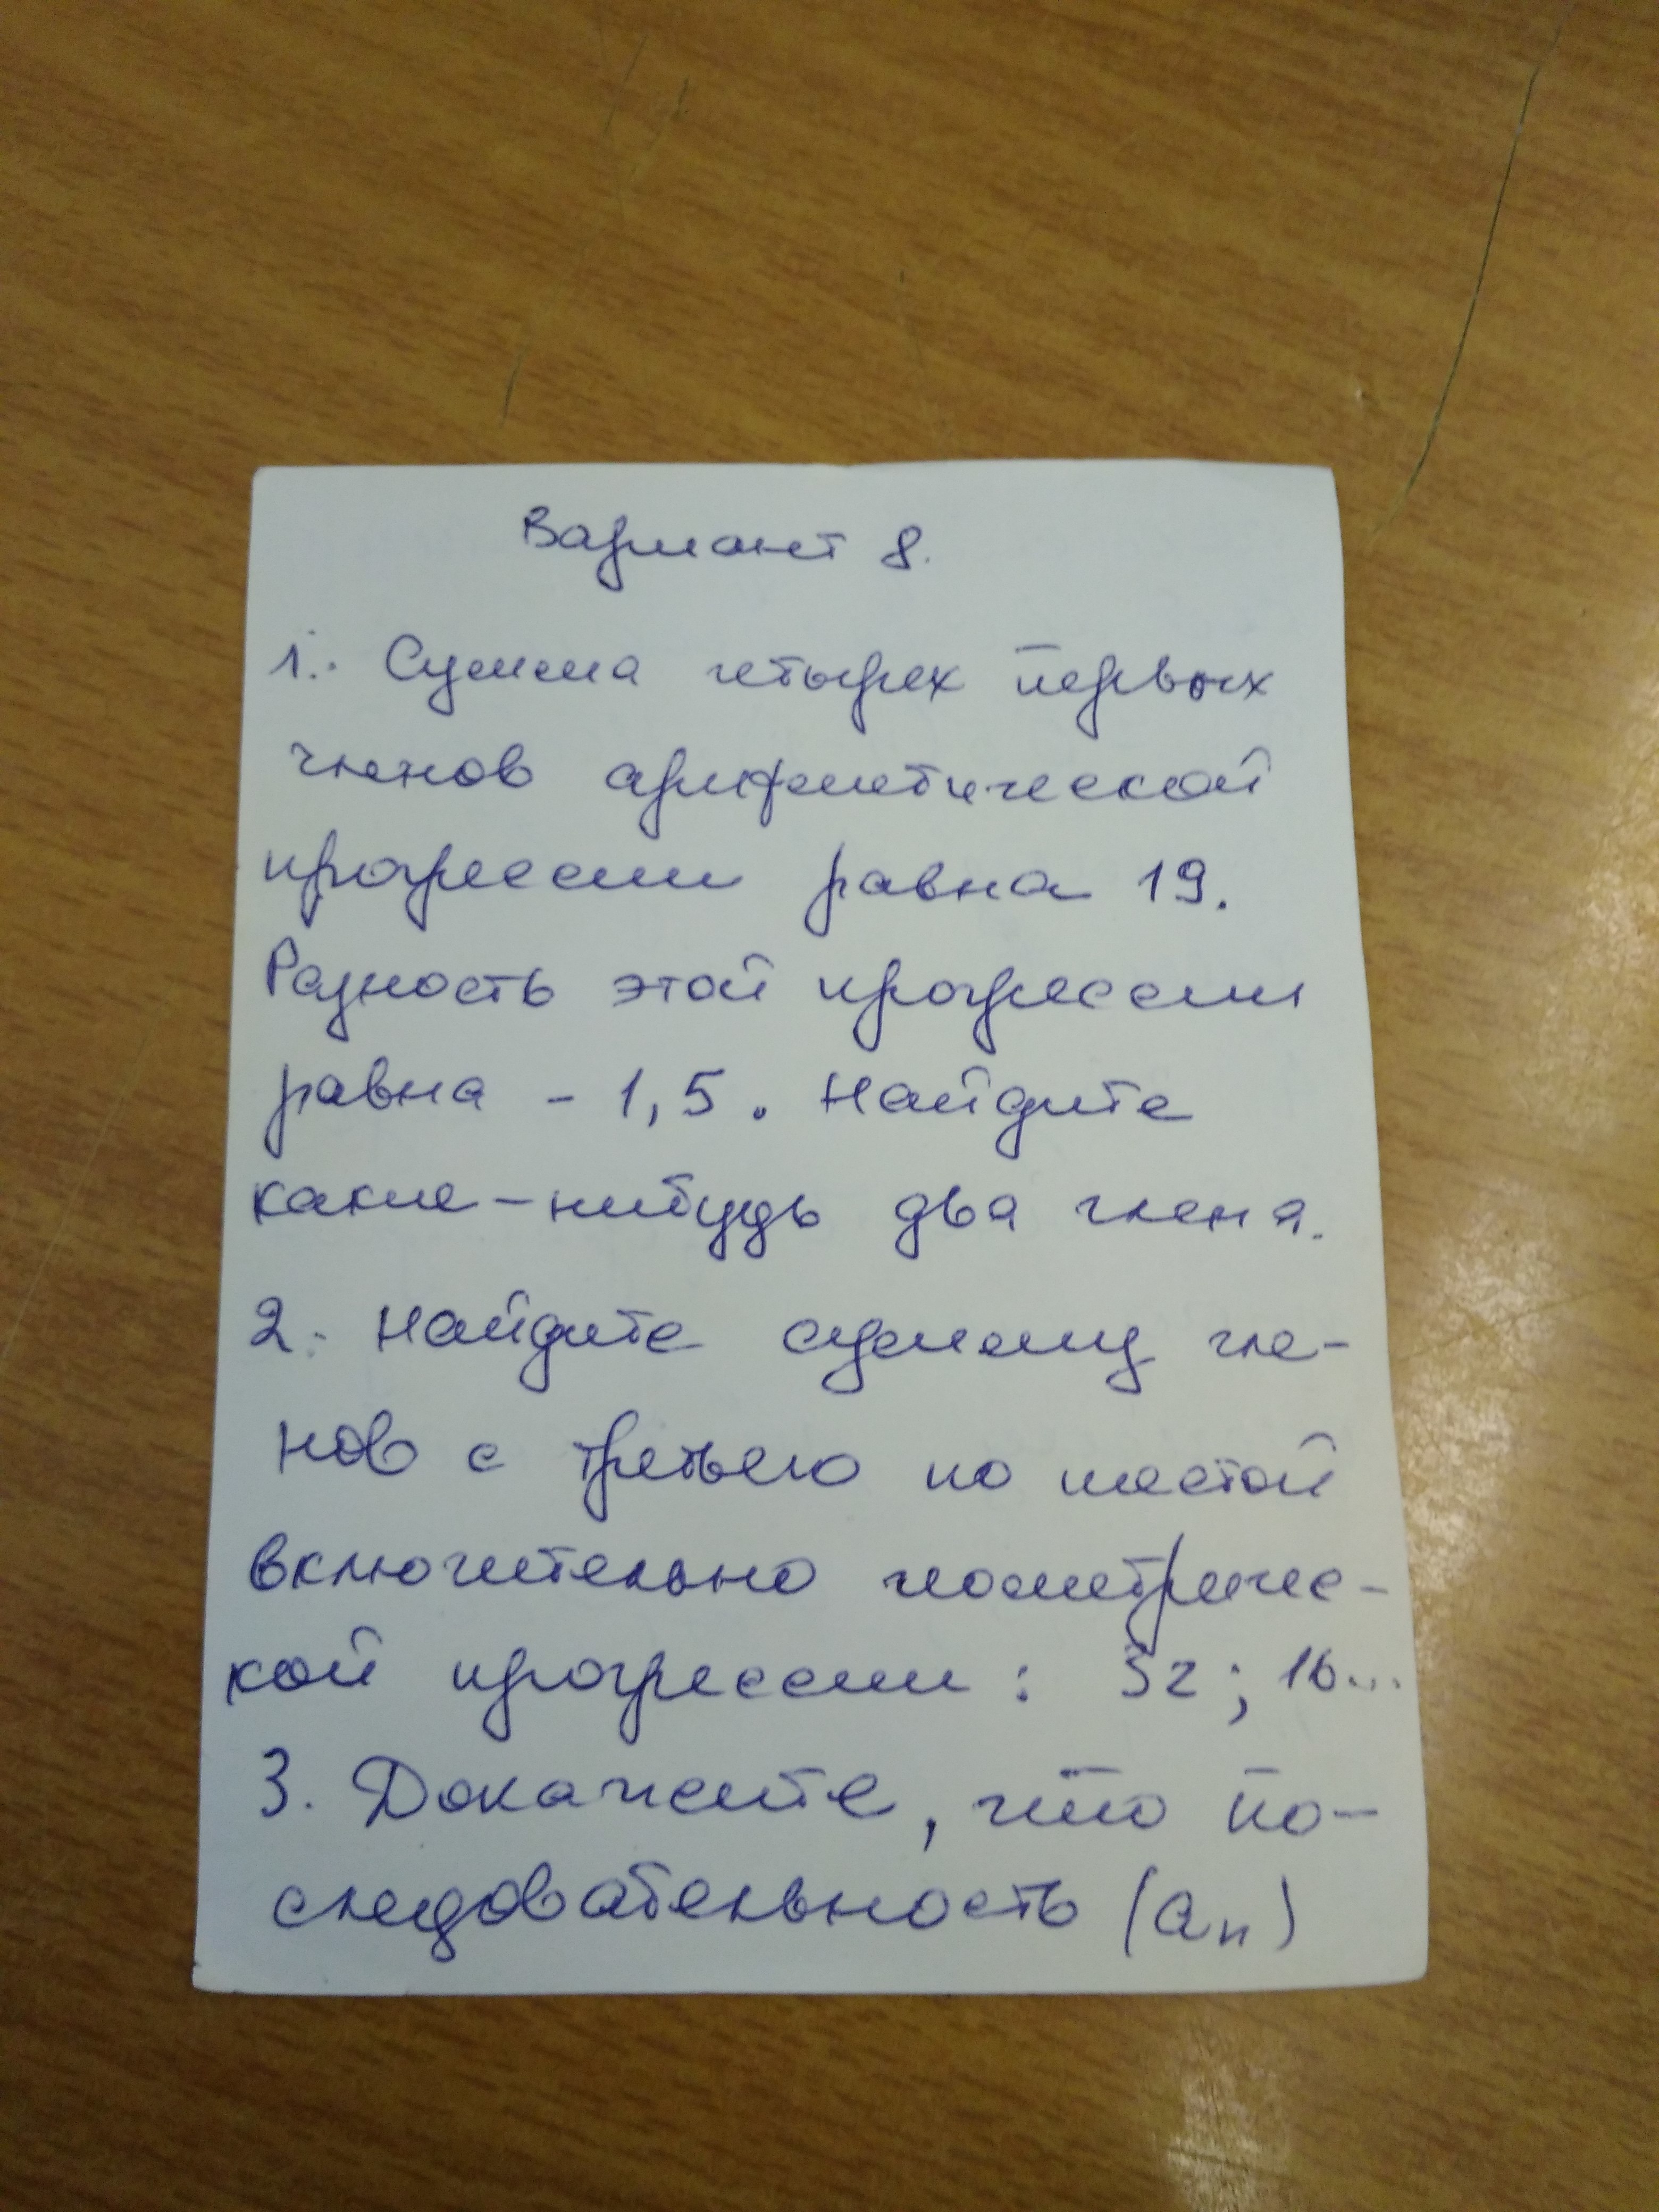 Вариант 8.
1. Сумма четырех первых
членов арифметической
прогрессии равна 19.
Разность этой прогрессии
равна - 1,5. Найдите
какие-нибудь два члена.
2. Найдите сумму чле-
нов с третьего по шестой
включительно геометричес-
кой прогрессии : 32; 16...
3. Докажите, что по-
следовательность (an)